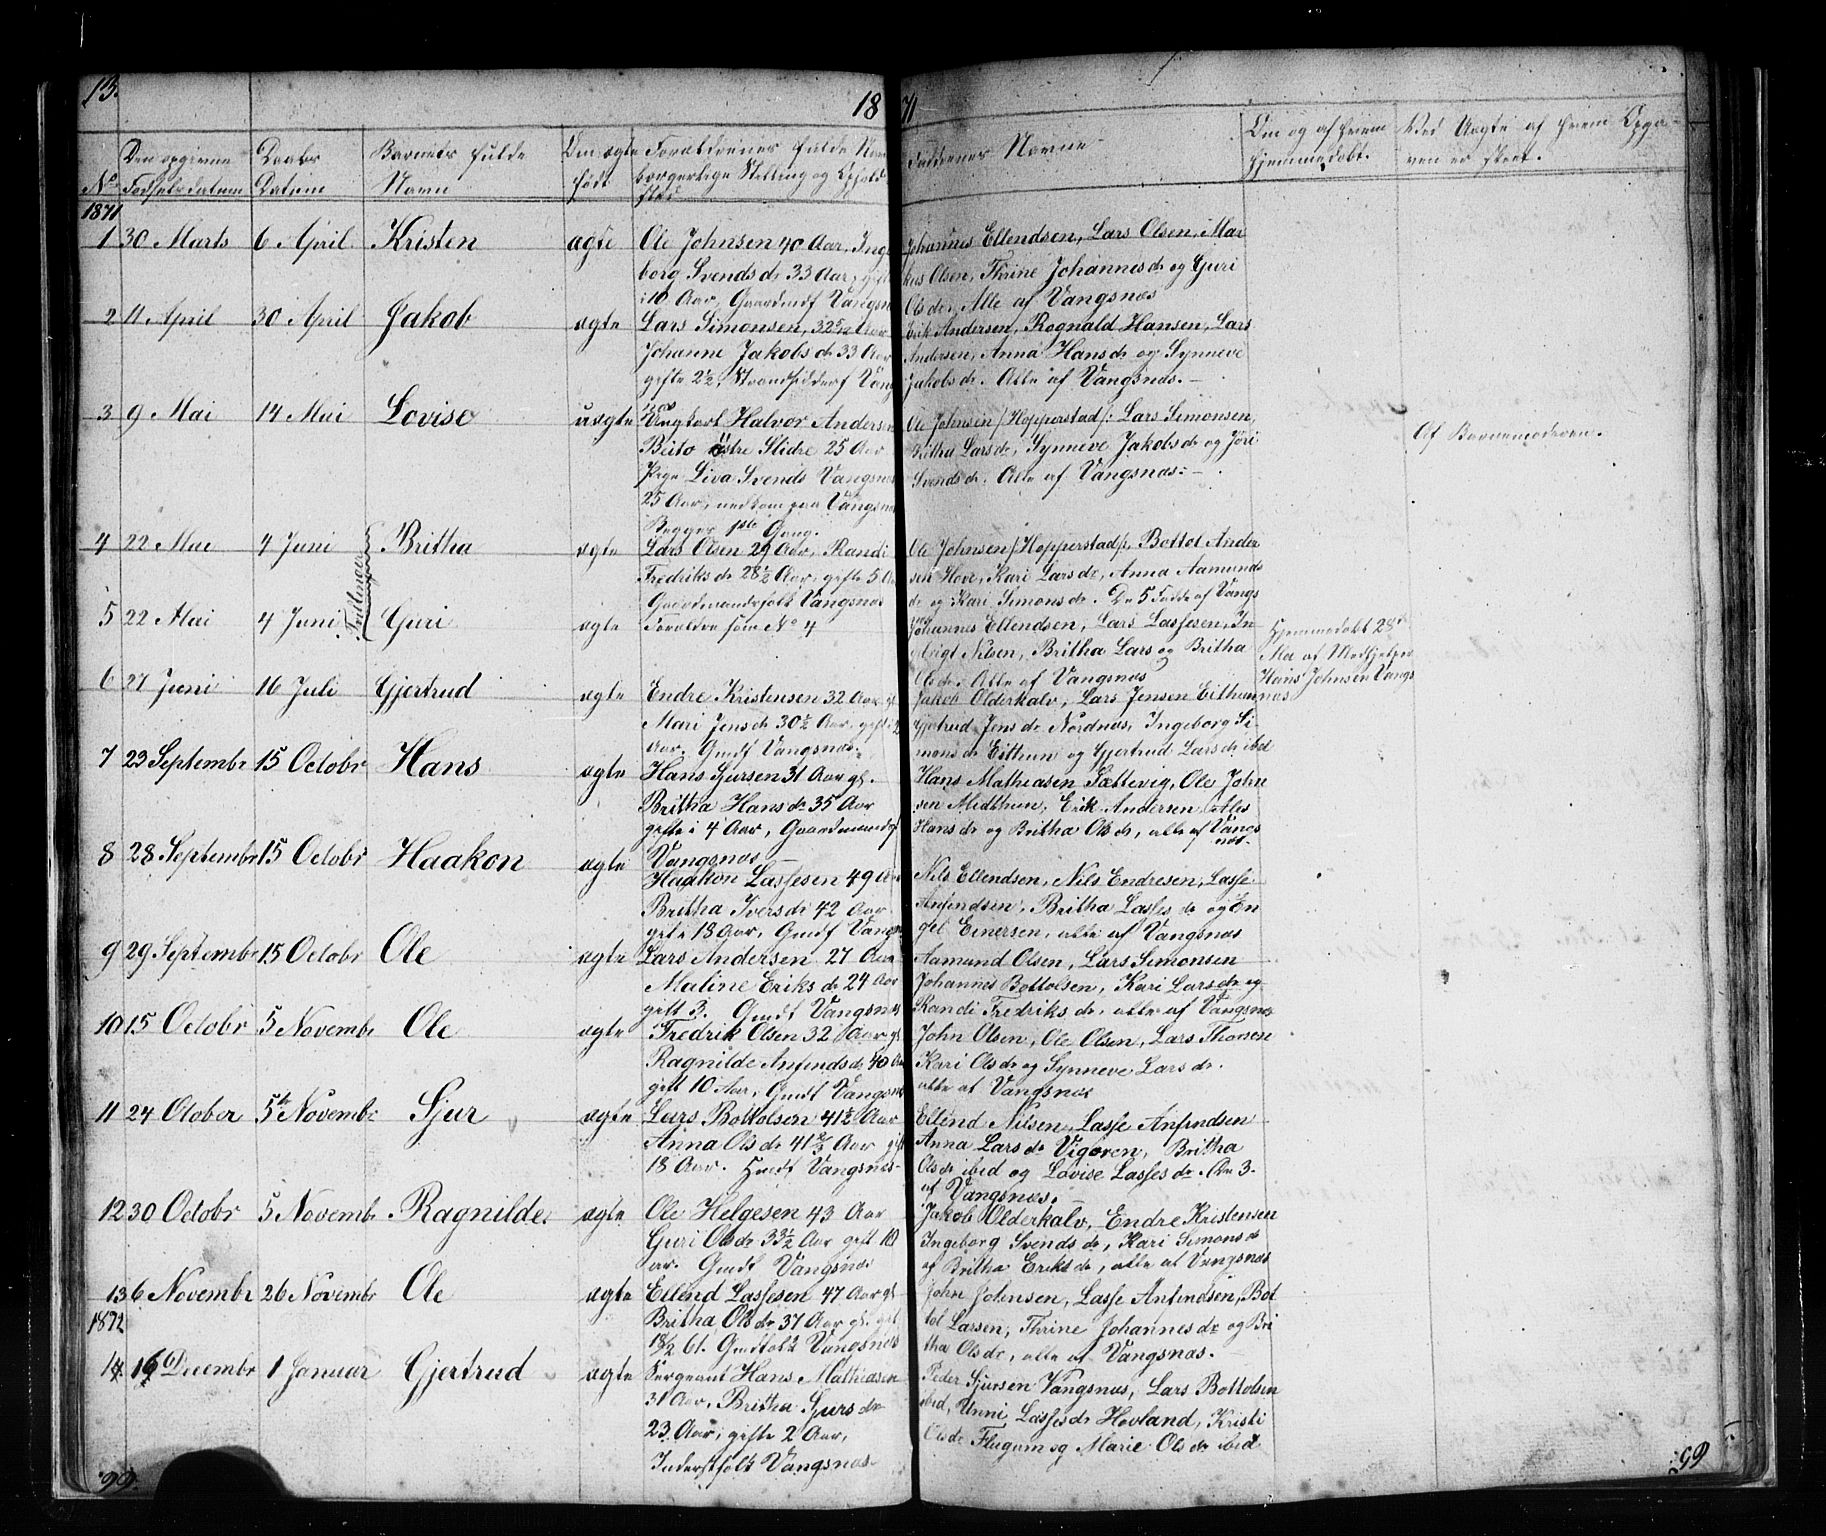 13.
18 71
No
Den opgivne Fødselsdatum
Daabs Datum
Barnets fulde Navn
Om ægte født
Forældrenes fulde Navn borgerlige Stilling og Opholdssted
Faddernes Navne
Om og af hvem hjemmedøbt.
Ved Uægte af hvem Opgaven er skeet.
1871
1 30 Marts 6 April Kristen ægte Ole Johnsen 40 Aar, Inge
borg Svends dr 33 Aar, gifte
i 10 Aar, Gaardmdf Vangsn
Johannes Ellendsen, Lars Olsen, Mar
kus Olsen, Thrine Johannesdr og Guri
Olsdr. Alle af Vangsnæs
2 11 April 30 April Jakob ægte Lars Simonsen, 32 5/12 Aar
Johanne Jakobs dr 33 Aar
gifte 2½, Strandsidderf Vang
Erik Andersen, Rognald Hansen, Lars
Andersen, Anna Hansdr og Synneve
Jakobsdr. Alle af Vangsnæs.
3 9 Mai 14 Mai Lovise uægte Ungkarl Halvor Andersen
Beito østre Slidre 25 Aar
Pige Liva Svends Vangsnæs
25 Aar, nedkom paa Vangsnæ
Begges 1ste Gang.
Ole Johnsen /:Hopperstad/: Lars Simonsen,
Britha Larsdr, Synneve Jakobsdr og Jori
Svendsdr. Alle af Vangsnæs:
Af Barnemoderen.
4 22 Mai 4 Juni Britha ægte Lars Olsen 29 Aar, Randi
Fredriks dr 28½ Aar, gifte 5 Aa
Gaardmandsfolk Vangsnæs
Ole Johnsen /:Hopperstad/:, Bottol Ander
sen Hove, Kari Larsdr, Anna Aamunds
dr og Kari Simonsdr. De 5 Fadde af Vangs
næs
Tvillinger
5 22 Mai 4 Juni Guri ægte Forældre som No 4
Johannes Ellendsen, Lars Lassesen, In
Nilsen, Britha Lars og Britha
Olsdr. Alle af Vangsnæs
Hjemmedøbt 28d
Mai af Medhjelper
Hans Johnsen Vangs
næs
6 27 Juni 16 Juli Gjertrud ægte Endre Kristensen 32 Aar gl
Mari Jensdr 30½ Aar. gift i 2
Aar, Gmdf Vangsnæs.
Jakob Olderkalv, Lars Jensen Eithun
Gjertrud Jensdr Nordnæs, Ingeborg Si
monsdr Eithun og Gjertrud Larsdr ibd
7 23 Septembr 15 Octobr Hans ægte Hans Sjursen 31 Aar gl.
Britha Hansdr 35 Aar
gifte i 4 Aar, Gaardmandsf
Vangsnæs
Hans Mathiasen Sættevig, Ole John
sen Midthun, Erik Andersen, Ales
Hansdr og Britha Olsdr, alle af Vangs
næs.
8 28 Septembr 15 Octobr Haakon ægte Haakon Lassesen 49 Aar
Britha Iversdr 42 Aar
gift i 18 Aar, Gmdf Vangs
Nils Ellendsen, Nils Endresen, Lasse
Anfindsen, Britha Lassesdr og En
gel Einersen, alle af Vangsnæs
9 29 Septembr 15 Octobr Ole ægte Lars Andersen 27 Aar
Maline Eriksdr 24 Aar
gift 3. Gmdf Vangsnæs
Aamund Olsen, Lars Simonsen
Johannes Bottolsen, Kari Larsdr og
Randi Fredriksdr, alle af Vangsnæs
10 15 Octobr 5 Novembr Ole ægte Fredrik Olsen 32 Aar gl
Ragnilde Anfindsdr 40 Aa
gift 10 Aar, Gmdf Vangsnæs
John Olsen, Ole Olsen, Lars Thonen
Kari Olsdr og Synneve Larsdr.
alle af Vangsnæs
11 24 Otober 5te Novembr Sjur ægte Lars Bottolsen 41½ Aar
Anna Olsdr 41 2/3 Aar gift
18 Aar. Gmdf Vangsnæs
Ellend Nilsen, Lasse Anfindsen
Anna Larsdr Vigøren, Britha
Olsdr ibid og Lovise Lassesdr. De 3
af Vangsnæs.
12 30 Octobr 5 Novembr Ragnilde ægte Ole Helgesen 43 Aar
Guri Olsdr 33½ Aar gift 10
ar. Gmdf Vangsnæs
Jakob Olderkalv, Endre Kristensen
Ingeborg Svendsdr, Kari Simonsdr
og Britha Eriksdr, alle af Vangsnæs
13 6 Novembr 26 Novembr Ole ægte Ellend Lassesen 47 Aar gl
Britha Olsdr 37 Aar gl. gift
18/2 61. Gmdfolk Vangsnæs
John Johnsen, Lasse Anfindsen, Bot
tol Larsen, Thrine Johannesdr og Bri
tha Olsdr, alle af Vangsnæs.
1872
14 16 Decembr 1 Januar Gjertrud ægte Sergeant Hans Mathiasen
31 Aar, Britha Sjursdr
23 Aar, gifte 2 Aar,
Inderstfolk Vangsnæs
Peder Sjursen Vangsnæs, Lars Bottolsen
ibid, Unni Lassesdr Hovland, Kristi
Olsdr Flugum og Marie Olsdr ibid
99.
99